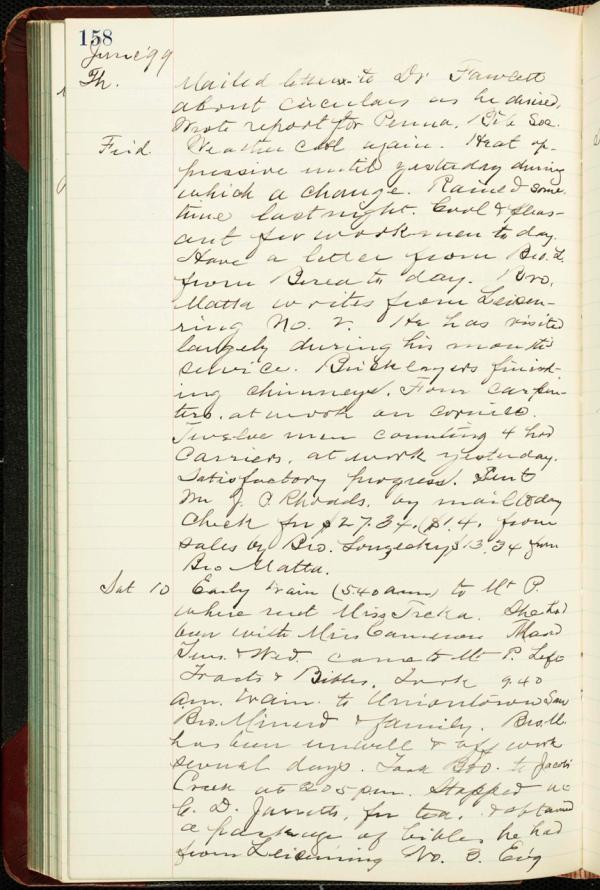 158
June '99
Th. Mailed letter to Dr Fawcett
about circulars as he desired.
Wrote report for Penna. Bib Soc.
Frid. Weather cool again. Heat op-
pressive until yesterday during
which a change. Rained some
time last night. Cool & pleas-
ant for workmen to day.
Have a letter from Bro. L.
from Berea to day. Bro.
Matta writes from Leisen-
ring No. 2. He has visited
largely during his months
service. Bricklayers finish-
ing chimneys. Four carpin-
ters. at work on cornice.
Twelve men counting 4 hod
carriers. at work yesterday.
Satisfactory progress. Sent
Mr J. C. Rhoads. by mail to day
check for $27.34. ($14. from
sales by Bro. $13.34 from
Bro Matta.
Sat 10 Early train (5.40 am) to Mt P.
where met Miss Treka. She had
been with Miss Cameron
Tues. & Wed. came to Mt P. Left
Tracts & Bibles. Took 9.40
am. train to Uniontown Saw
Bro. Minerd & family. Bro. M.
has been unwell & off work
several days. Took B&O. to Jacobs
Creek at 2.05 pm. Stopped at
C. D. Jarretts, for tea. & obtained
a package of bibles he had
from Leisenring No. 3. Ev'g